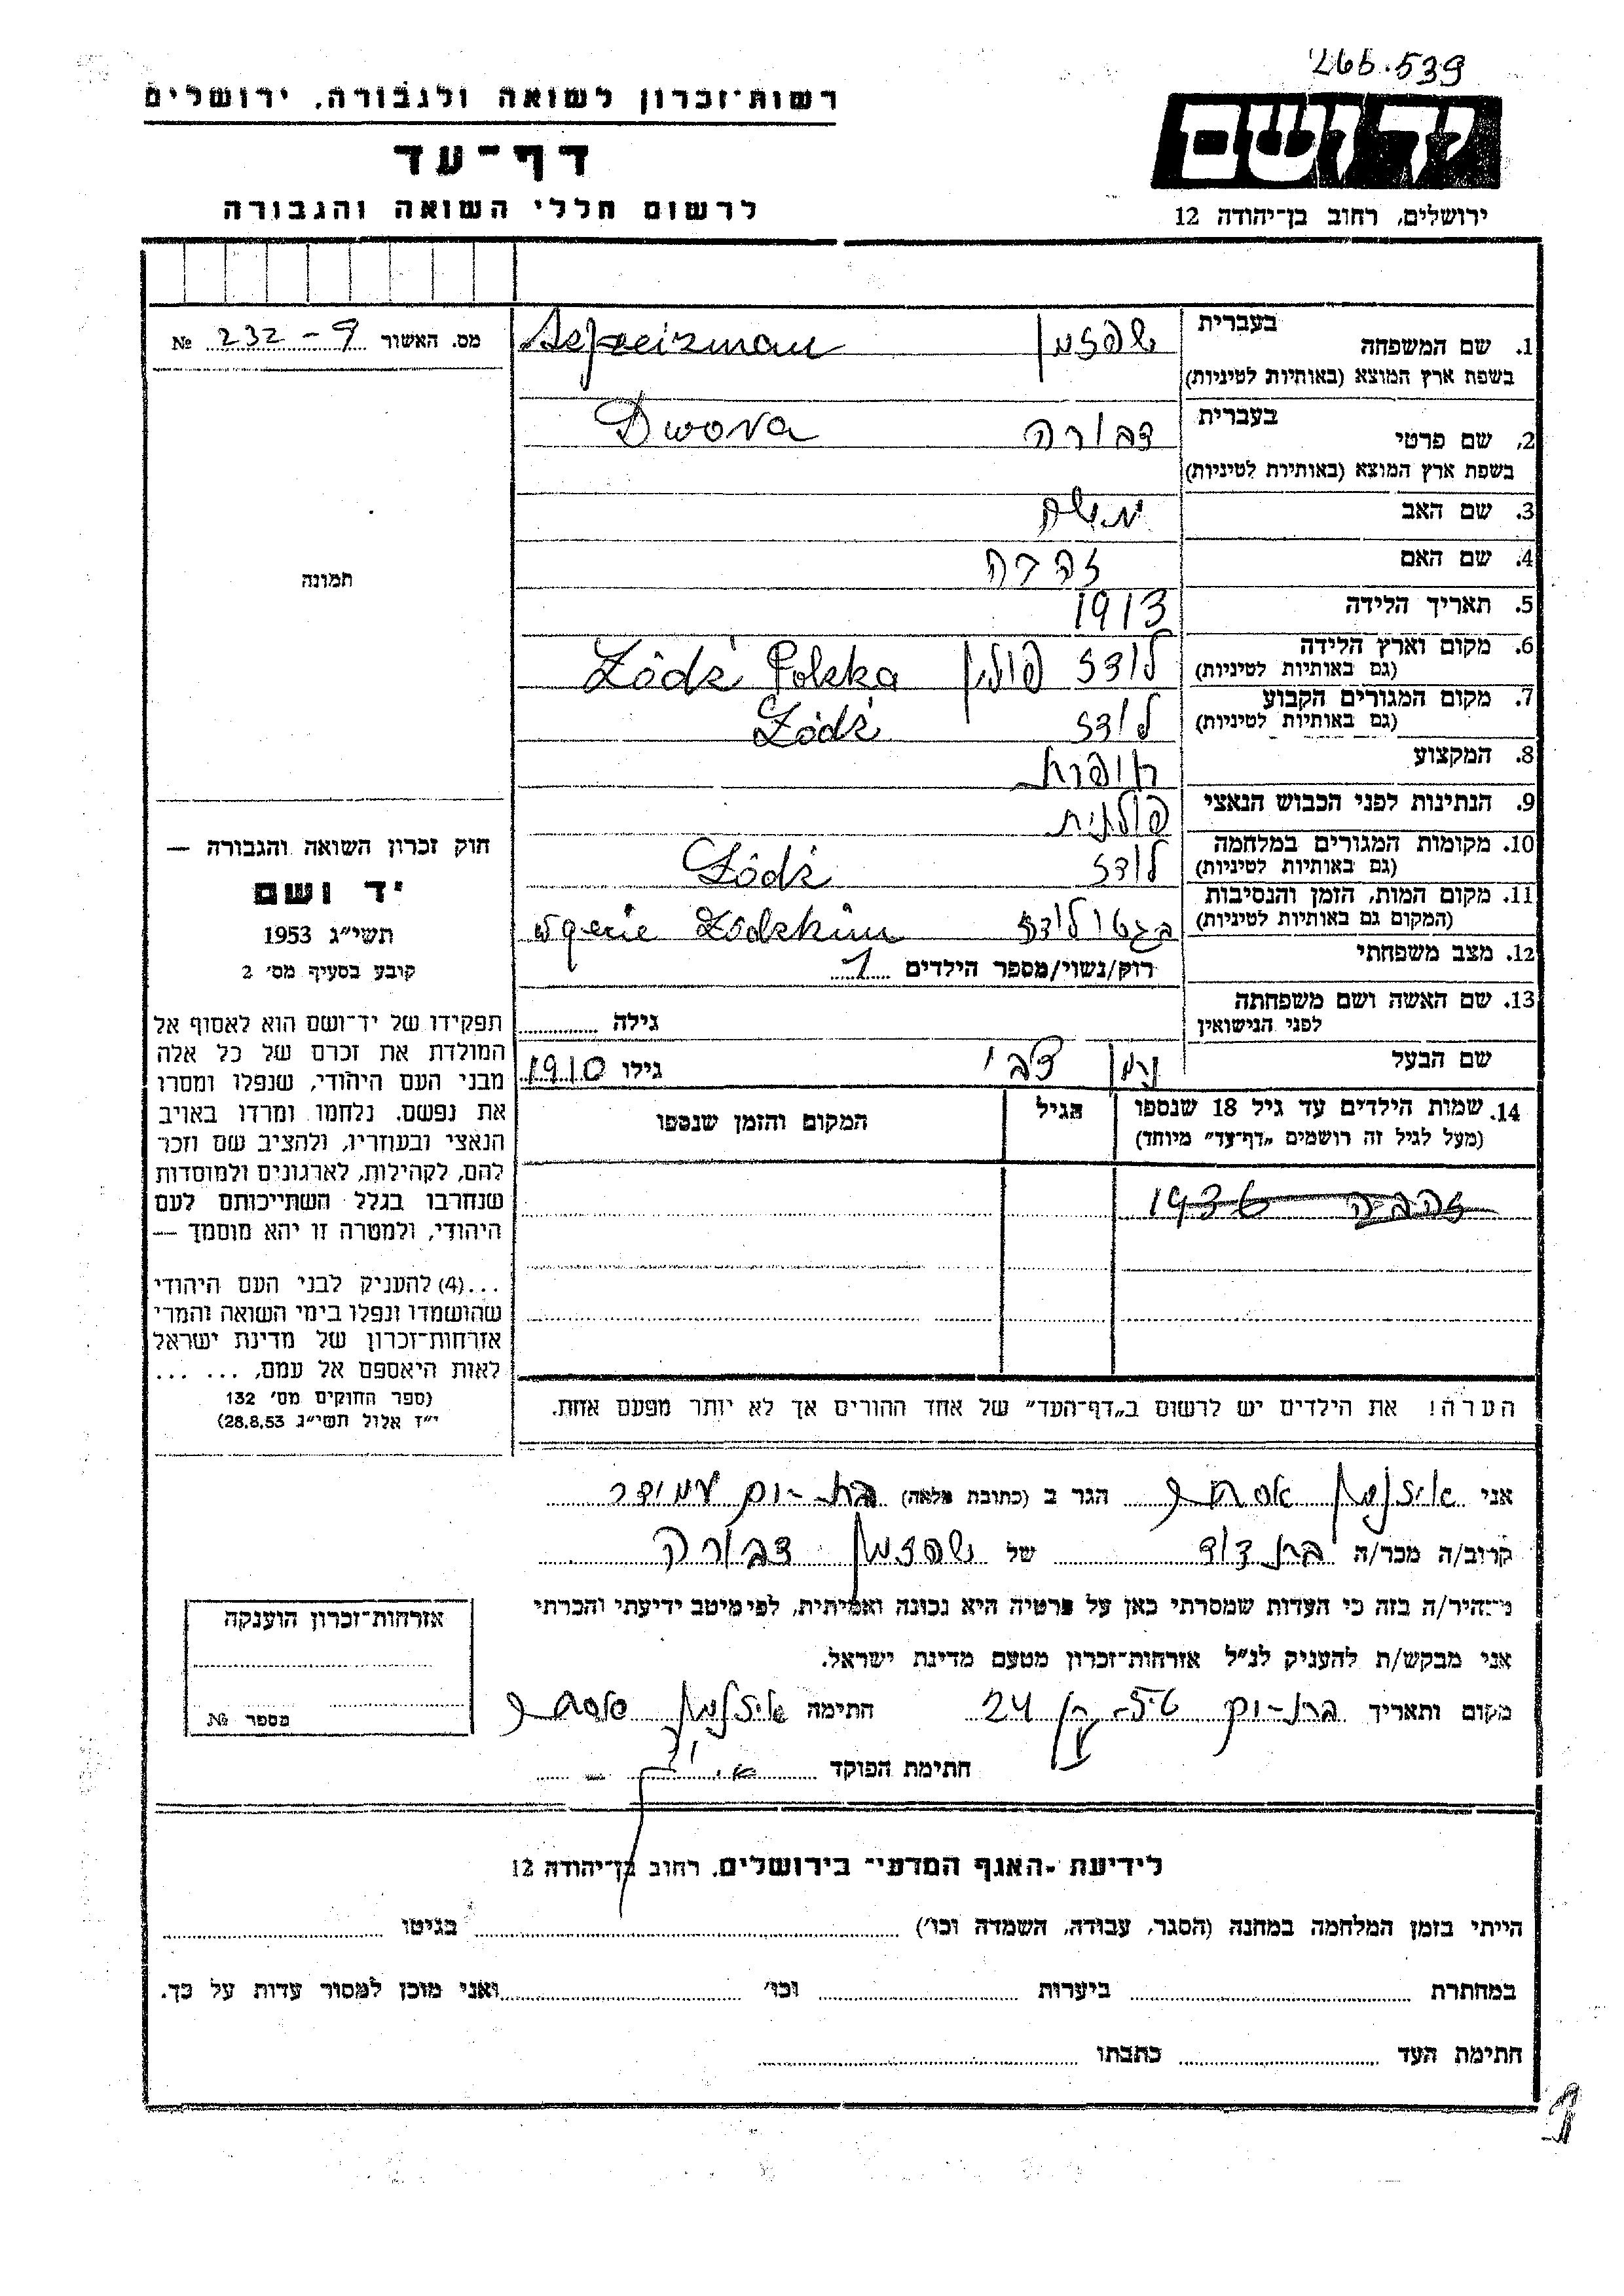 266.539
רשות־זכרון לשואה ולגבורה, ירושלים
יד ושם
דף־עד
לרשום חללי השואה והגבורה
ירושלים, רחוב בן־יהודה 12
מס. האשור 232-9 №
1. שם המשפחה
בעברית שפזמן
בשפת ארץ המוצא (באותיות לטיניות)
2. שם פרטי
בעברית דבורה Dwora
בשפת ארץ המוצא (באותיות לטיניות)
3. שם האב
4. שם האם
5. תאריך הלידה 1913
6. מקום וארץ הלידה לודז פולין Łódź Polska
(גם באותיות לטיניות)
7. מקום המגורים הקבוע לודז Łódź
(גם באותיות לטיניות)
8. המקצוע תופרת
9. הנתינות לפני הכבוש הנאצי פולנית
10. מקומות המגורים במלחמה לודז Łódź
(גם באותיות לטיניות)
11. מקום המות, הזמן והנסיבות בגטו לודז
(המקום גם באותיות לטיניות)
12. מצב משפחתי רוק/נשוי/מספר הילדים 1
13. שם האשה ושם משפחתה
לפני הנישואין
גילה
שם הבעל צבי גילו 1910
14. שמות הילדים עד גיל 18 שנספו
(מעל לגיל זה רושמים „דף־עד” מיוחד)
הגיל
המקום והזמן שנספו
1936
תמונה
חוק זכרון השואה והגבורה —
יד ושם
תשי״ג 1953
קובע בסעיף מס׳ 2
תפקידו של יד־ושם הוא לאסוף אל
המולדת את זכרם של כל אלה
מבני העם היהודי, שנפלו ומסרו
את נפשם, נלחמו ומרדו באויב
הנאצי ובעוזריו, ולהציב שם וזכר
להם, לקהילות, לארגונים ולמוסדות
שנחרבו בגלל השתייכותם לעם
היהודי, ולמטרה זו יהא מוסמך —
...(4) להעניק לבני העם היהודי
שהושמדו ונפלו בימי השואה והמרי
אזרחות־זכרון של מדינת ישראל
לאות היאספם אל עמם, ... ...
(ספר החוקים מס׳ 132
י״ז אלול תשי״ג 28.8.53)
הערה! את הילדים יש לרשום ב„דף־העד” של אחד ההורים אך לא יותר מפעם אחת.
אני איזנמן אסתר הגר ב (כתובת מלאה) בת-ים
קרוב/ה מכר/ה בת דוד של שפזמן דבורה
מצהיר/ה בזה כי העדות שמסרתי כאן על פרטיה היא נכונה ואמיתית, לפי מיטב ידיעתי והכרתי
אני מבקש/ת להעניק לנ״ל אזרחות־זכרון מטעם מדינת ישראל.
מקום ותאריך בת-ים 24 החתימה איזנמן אסתר
חתימת הפוקד
אזרחות־זכרון הוענקה
מספר №
לידיעת „האגף המדעי” בירושלים, רחוב בן־יהודה 12
הייתי בזמן המלחמה במחנה (הסגר, עבודה, השמדה וכו׳) בגיטו
במחתרת ביערות וכו׳ ואני מוכן למסור עדות על כך.
חתימת העד כתבתו